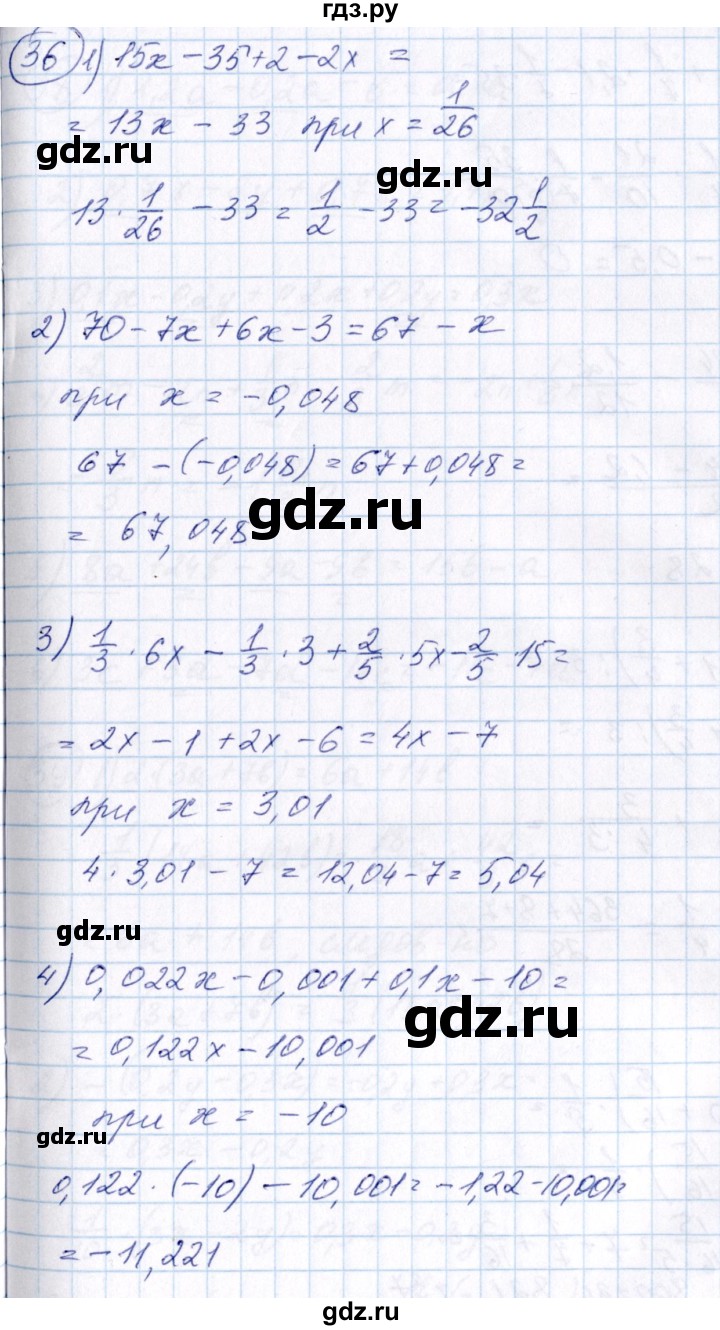 гдз.ру
36 1) 15x − 35 + 2 − 2x =
= 13x − 33 при x = 1/26
gdz.ru
gdz.ru
13 · 1/26 − 33 = 1/2 − 33 = −32 1/2
2) 70 − 7x + 6x − 3 = 67 − x
при x = −0,048
67 − (−0,048) = 67 + 0,048 =
= 67,048
gdz.ru
3) 1/3 · 6x − 1/3 · 3 + 2/5 · 5x − 2/5 · 15 =
= 2x − 1 + 2x − 6 = 4x − 7
при x = 3,01
4 · 3,01 − 7 = 12,04 − 7 = 5,04
gdz.ru
4) 0,022x − 0,001 + 0,1x − 10 =
gdz.ru
= 0,122x − 10,001
при x = −10
gdz.ru
0,122 · (−10) − 10,001 = −1,22 − 10,001 =
= −11,221
gdz.ru